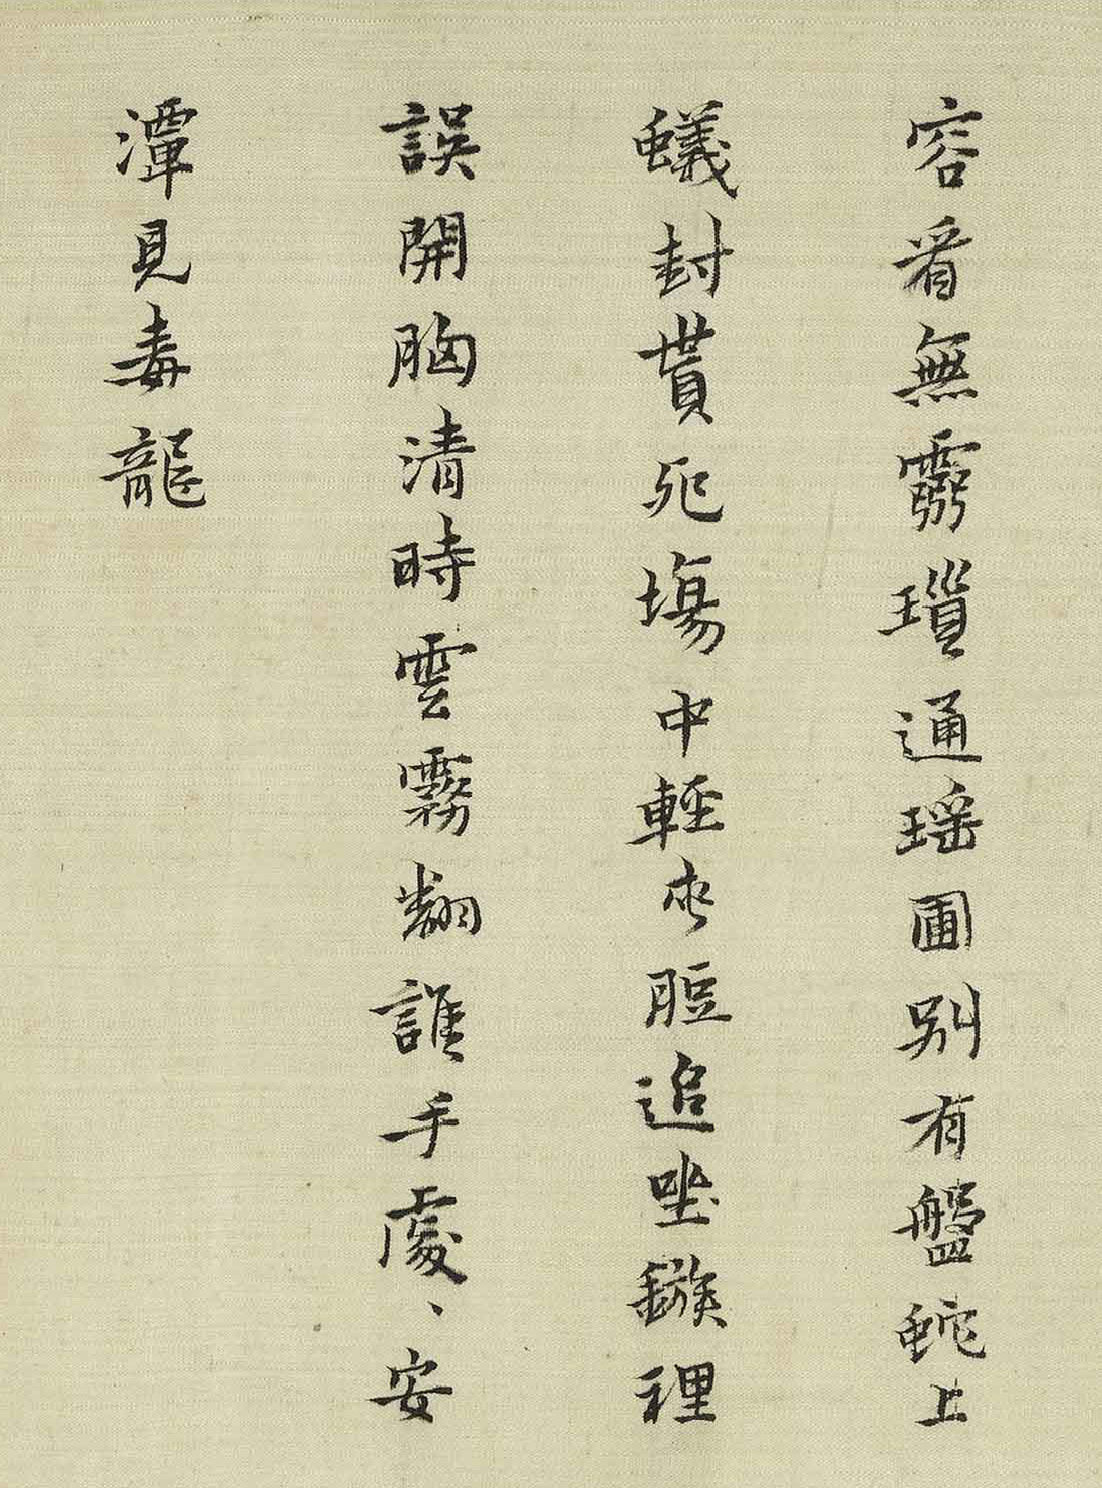 容看無瑣通瑶圃别有盤蛇上
蟻封貰死塲中輕脰追坐鏃裡
誤開胸清時雲霧翻誰手處、安
潭見毒龍